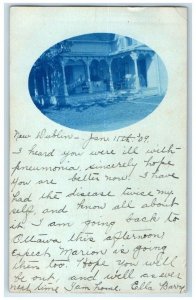 New Dublin - Jan. 15th '09
I heard you were ill with
pneumonia, sincerely hope
you are better now. I have
had the disease twice my
self, and know all about
it. I am going back to
Ottawa this afternoon
Expect Marion is going
then too. Hope you will
soon be well and well as ever
next time I am home. Ella Barry